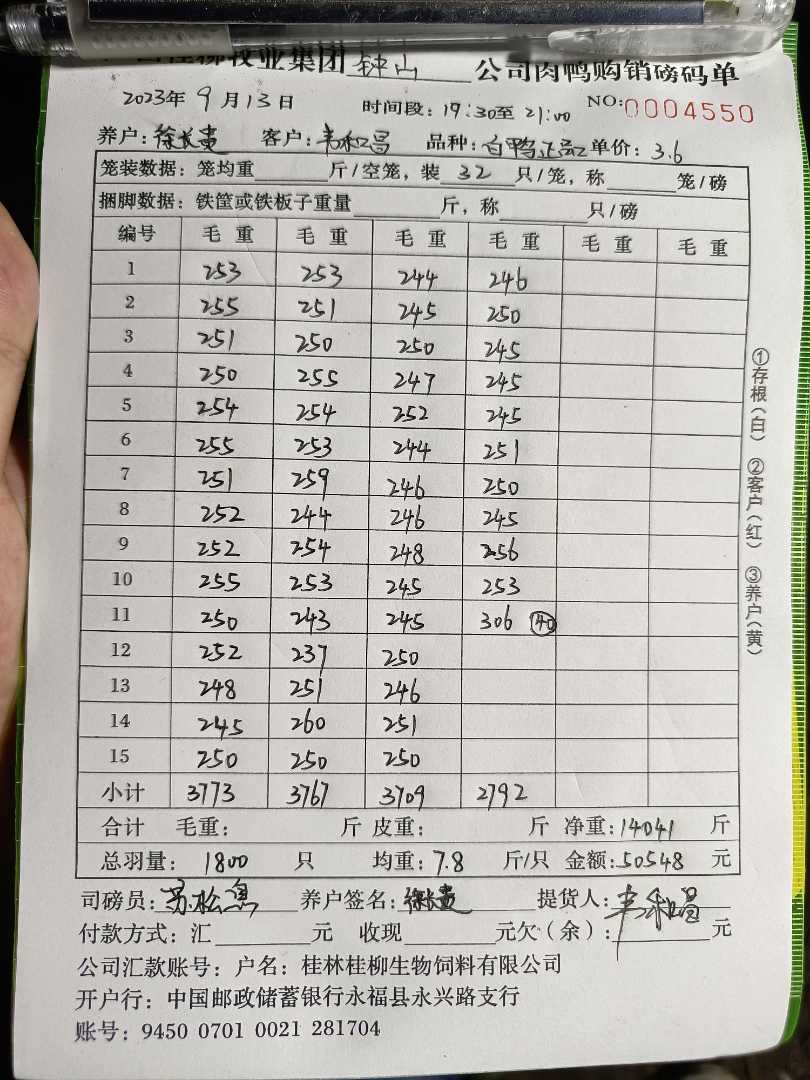 桂柳牧业集团钟山公司肉鸭购销磅码单
2023年9月13日 时间段：19:30至21:00 NO:0004550
养户：徐长贵 客户：韦和昌 品种：白鸭正品 单价：3.6
笼装数据：笼均重 斤/空笼，装 32 只/笼，称 笼/磅
捆脚数据：铁筐或铁板子重量 斤，称 只/磅
编号 毛重 毛重 毛重 毛重 毛重 毛重
1 253 253 244 246
2 255 251 245 250
3 251 250 250 245
4 250 255 247 245
5 254 254 252 245
6 255 253 244 251
7 251 259 246 250
8 252 244 246 245
9 252 254 248 256
10 255 253 245 253
11 250 243 245 306 40
12 252 237 250
13 248 251 246
14 245 260 251
15 250 250 250
小计 3773 3767 3709 2792
合计 毛重： 斤 皮重： 斤 净重：14041 斤
总羽量：1800 只 均重：7.8 斤/只 金额：50548 元
司磅员： 养户签名：徐长贵 提货人：韦和昌
付款方式：汇 元 收现 元欠（余）： 元
公司汇款账号：户名：桂林桂柳生物饲料有限公司
开户行：中国邮政储蓄银行永福县永兴路支行
账号：9450 0701 0021 281704
①存根（白） ②客户（红） ③养户（黄）